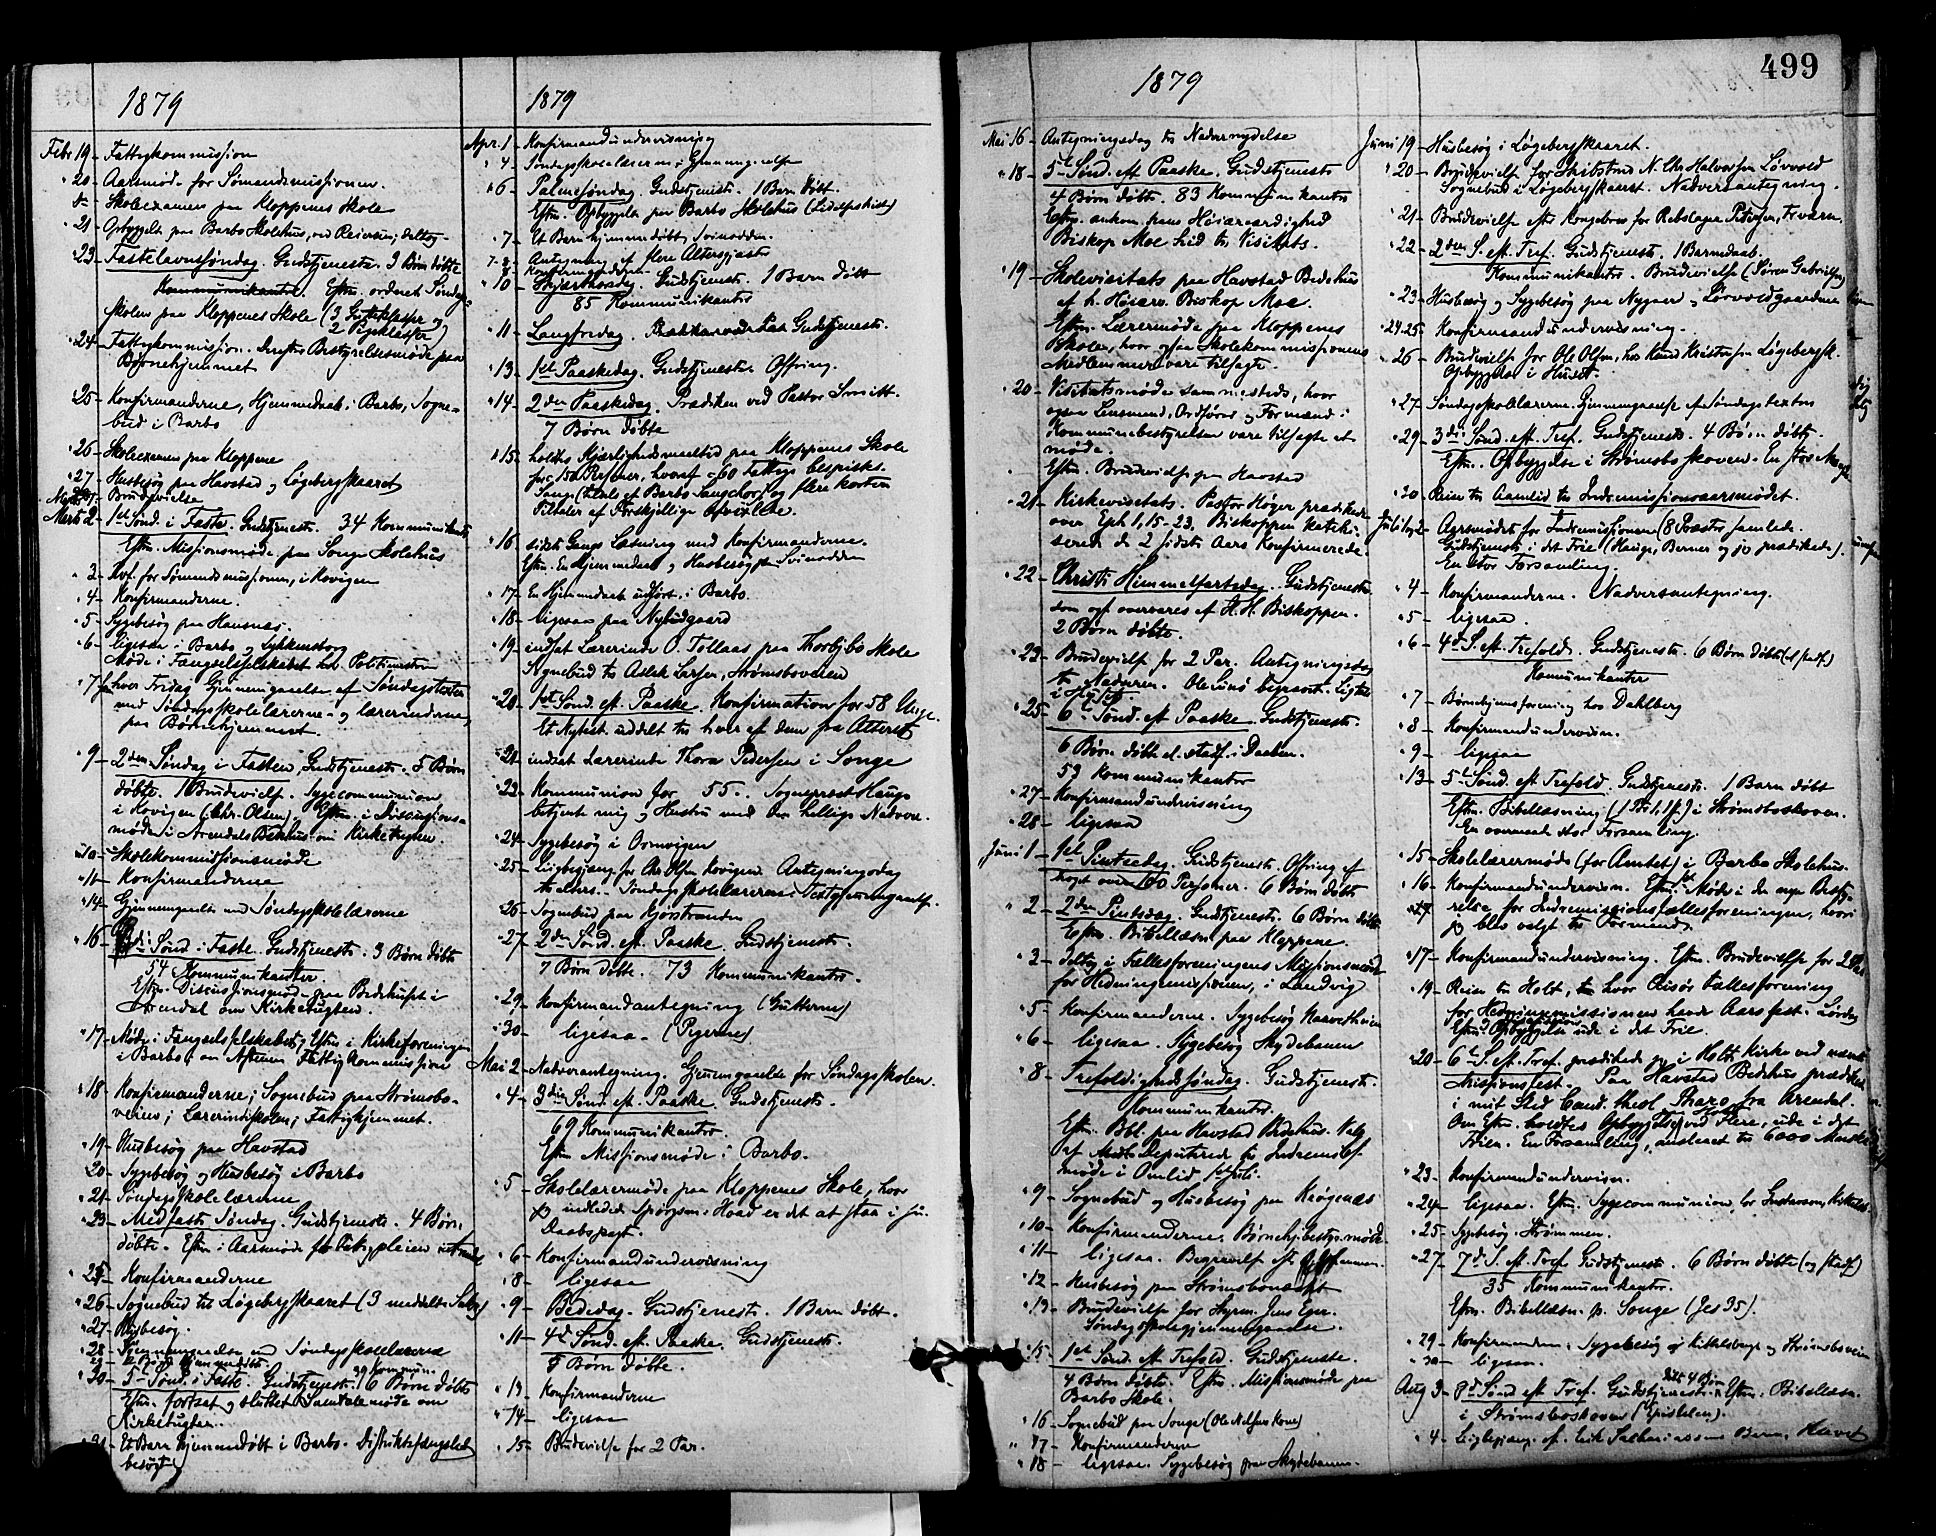 499
1879
Febr. 19 – Fattigkommission
" 20 – Aarsmøde for Sømandsmissionen.
Skoleexamen paa Kloppenes Skole
" 21 – Opbyggelse paa Barbo Skolehus, ved Reiersen; deltog –
" 23 – Fastelavnssøndag. Gudstjeneste. 3 Børn døbte
Kommunikanter. Eftm. ordnet Søndags-
skolen paa Kloppenes Skole (3 Gutteklasser og
2 Pigeklasser)
" 24 – Fattigkommission. Derefter Bestyrelsesmøde paa
Børnehjemmet
" 25 – Konfirmanderne, Hjemmedaab i Barbo, Sogne-
bud i Barbo
" 26 – Skoleexamen paa Kloppene
" 27 – Husbesøg paa Havstad og Løgebergskaaret
Marts 1 – Brudevielse
Marts 2 – 1ste Sønd. i Faste. Gudstjeneste. 34 Kommunikanter
Eftm. Missionsmøde paa Songe Skolehus
" 3 – Kvf. for Sømandsmissionen, i Kovigen
" 4 – Konfirmanderne.
" 5 – Sygebesøg paa
" 6 – ligesaa i Barbo og Lykkensborg
Møde i Fængselsselskabet hos Politimesteren
" 7 – hver Fredag Gjennemgaaelse af Søndagstexten
med Søndagsskolelærerne og lærerinderne,
paa Børnehjemmet.
" 9 – 2den Søndag i Fasten, Gudstjeneste. 5 Børn
døbte. 1 Brudevielse. Sygecommunion
i Kovigen (Chr. Olsen). Eftm. i Discussions-
møde i Arendals Bedehus om Kirketugten.
" 10 – Skolekommissionsmøde
" 11 – Konfirmanderne
" 14 – Gjennemgaaelse med Søndagsskolelærerne
" 16 – 3die Sønd. i Faste. Gudstjeneste. 3 Børn døbte
54 Kommunikanter.
Eftm. Discussionsmøde paa Bedehuset i
Arendal om Kirketugten.
" 17 – Møde i Fængselsselskabet, Eftm. i Kirkeforeningen
i Barbo; om Aftenen Fattigkommission
" 18 – Konfirmanderne; Sognebud paa Strømsbo-
veien; Lærerindeskolen; Fattighjemmet.
" 19 – Husbesøg paa Havstad
" 20 – Sygebesøg og Husbesøg i Barbo
" 21 – Søndagsskolelærerne
" 23 – Midfaste Søndag. Gudstjeneste. 4 Børn
døbte. Eftm. i Aarsmøde for Fattigpleien
" 25 – Konfirmanderne
" 26 – Sognebud til Løgebergskaaret (3 meddelte Salvg)
" 27 – Husbesøg.
" 28 – Gjennemgaaelse med Søndagsskolelærerne
" 29 – 2 Børn hjemmedøbte.
" 30 – 5te Sønd. i Faste. Gudstjeneste. 6 Børn døbte
Eftm. fortsat og sluttet Samtalemøde om
Kirketugten.
" 31 – Et Barn hjemmedøbt i Barbo. Distriktsfængslet
besøgt
1879
Apr. 1 – Konfirmandundervisning
" 4 – Søndagsskolelærernes Gjennemgaaelse
" 6 – Palmesøndag. Gudstjeneste. 1 Barn døbt.
Eftm. Opbyggelse paa Barbo Skolehus (Lidelseshist)
" 7 – Et Barn hjemmedøbt, Svinodden.
7-8 – Antegning af flere Altergjæster
" 8 – Konfirmanderne
" 10 – Skjærtorsdag. Gudstjeneste. 1 Barn døbt
85 Kommunikanter
" 11 – Langfredag. Gudstjeneste.
" 13 – 1ste Paaskedag. Gudstjeneste. Offring.
" 14 – 2den Paaskedag. Prædiken ved Pastor Smitt.
7 Børn døbte
" 15 – holdtes Kjærlighedsmaaltid paa Kloppenes Skole
for c. 150 Personer, hvoraf c. 60 Fattige bespistes.
Sang (tildels af Barbo Sangchor) og flere kortere
Tiltaler af Forskjellige Afvexlede.
" 16 – sidste Gangs Læsning med Konfirmanderne.
Eftm. En Hjemmedaab og Husbesøg paa Svinodden
" 17 – En Hjemmedaab udført i Barbo.
" 18 – ligesaa paa Nybodgaard
" 19 – indsat Lærerinde O. Tollaas paa Thorbjbo Skole
Sognebud til Aslak Larsen, Strømsboveien
" 20 – 1ste Sønd. eft. Paaske. Konfirmation for 58 Unge.
Et Nytest. uddelt til hver af dem fra Alteret
" 21 – indsat Lærerinde Thora Pedersen i Songe
" 22 – Kommunion for 55. Sogneprest Hauge
betjente mig og Hustru med den hellige Nadvere.
" 24 – Sygebesøg i Ormvigen
" 25 – Liigbegjæng. for Chr Olsen Kovigen. Antegningsdag
til Alters. Søndagsskolelærerne Textgjennemgaaelse.
" 26 – Sognebud paa Kjorstranden
" 27 – 2den Sønd. eft. Paaske. Gudstjeneste.
7 Børn døbte. 73 Kommunikanter.
" 29 – Konfirmandantegning (Gutterne)
" 30 – ligesaa – (Pigerne)
Mai 2 – Nadverantegning. Gjennemgaaelse for Søndagsskolen.
" 4 – 3die Sønd. eft. Paaske. Gudstjeneste.
69 Kommunikanter.
Eftm. Missionsmøde i Barbo.
" 5 – Skolelærermøde paa Kloppenes Skole, hvor
jeg indledede Spørgsm.: Hvad er det at staa i sin
Daabspagt.
" 6 – Konfirmandundervisning
" 8 – ligesaa
" 9 – Bededag. Gudstjeneste. 1 Barn døbt.
" 11 – 4de Sønd. eft. Paaske. Gudstjeneste.
5 Børn døbte.
" 13 – Konfirmanderne
" 14 – ligesaa
" 15 – Brudevielse for 2 Par.
1879
Mai 16 – Antegningsdag til Nadvernydelse
" 18 – 5te Sønd. eft. Paaske. Gudstjeneste
4 Børn døbte. 83 Kommunikanter
Eftm. ankom hans Høiærværdighed
Biskop Moe hid til Visitats.
" 19 – Skolevisitats paa Havstad Bedehus
af h. Høiærv. Biskop Moe.
Eftm. Lærermøde paa Kloppenes
Skole, hvor ogsaa Skolekommissionens
Medlemmer vare tilsagte.
" 20 – Visitatsmøde sammesteds, hvor
ogsaa Lensmand, Ordfører og Formænd i
Kommunebestyrelsen vare tilsagte at
møde.
Eftm. Brudevielse paa Havstad
" 21 – Kirkevisitats. Pastor Høyer prædikede
over Eph 1, 15-23. Biskoppen kateki-
serede de 2 sidste Aars Konfirmerede.
" 22 – Christi Himmelfartsdag. Gudstjeneste
som ogs. overvares af H. H. Biskoppen.
2 Børn døbte.
" 23 – Brudevielse for 2 Par. Antegningsdag
til Nadveren. Ole begravet. Ligtale
i Huset.
" 25 – 6te Sønd. eft Paaske. Gudstjeneste.
6 Børn døbte el. stadf. i Daaben.
59 Kommunikanter
" 27 – Konfirmandundervisning
" 28 – ligesaa
Juni 1 – 1ste Pintsedag. Gudstjeneste. Offring af
noget over 100 Personer. 6 Børn døbte
" 2 – 2den Pintsedag. Gudstjeneste. 6 Børn døbte
Eftm. Bibellæsn. paa Kloppene.
" 3 – deltog i Fællesforeningens Missionsmøde
for Hedningemissionen, i Landvig
" 5 – Konfirmanderne. Sygebesøg Narvetheien
" 6 – ligesaa. Sygebesøg Skydebanen
" 8 – Trefoldighedssøndag. Gudstjeneste.
Kommunikanter.
Eftm. Bbl. paa Havstad Bedehus. Valg
af Deputerede til Indremisf.
møde i Omlid 1ste Juli.
" 9 – Sognebud og Husbesøg paa Krøgenæs
" 10 – Konfirmanderne. Børnehj.bestyr.møde
" 11 – ligesaa. Begravelse
" 12 – Husbesøg paa
" 13 – Brudevielse for Styrm. Jens Eger.
Søndagsskolegjennemgaaelse.
" 15 – 1ste Sønd. eft Trefold. Gudstjeneste.
4 Børn døbte. Eftm. Missionsmøde paa
Barbo Skole.
" 16 – Sognebud paa Songe (Ole Nilsens Kone)
" 17 – Konfirmanderne
" 18 – ligesaa. Sygebesøg paa Skydebanen.
Juni 19 – Husbesøg i Løgebergskaaret.
" 20 – Brudevielse for Skibstmd N. Chr Halvorsen Løvvold
Sognebud i Løgebergskaaret. Nadverantegning.
" 21 – Brudevielse efter Kongebrev for Rebslager Petersen, Tvæven
" 22 – 2den S. eft. Tref. Gudstjeneste. 1 Barnedaab.
Kommunikanter. Brudevielse (Søren Gabrielsen)
" 23 – Husbesøg og Sygebesøg paa Nygaard og Løvvoldgaardene
" 24.25 – Konfirmandundervisning.
" 26 – Brudevielse for Ole Olsen, hos Knud Kristensen Løgebergsk.
Opbyggelse i Huset.
" 27 – Søndagsskolelærerne, Gjennemgaaelse af Søndagstexten
" 29 – 3die Sønd. eft. Tref. Gudstjeneste. 4 Børn døbte.
Eftm. Opbyggelse i Strømsboskoven. En stor Mængde
" 30 – Reise til Aamlid til Indremissionsaarsmødet.
Juli 1 og 2 – Aarsmødet for Indremissionen (8 Præster samlede.
Gudstjeneste i det Frie (Hauge, Berner og jeg prædikede).
En stor Forsamling.
" 4 – Konfirmanderne. Nadverantegning.
" 5 – ligesaa.
" 6 – 4de S. eft. Trefold. Gudstjeneste. 6 Børn døbte (el stadf.)
Kommunikanter
" 7 – Børnehjemsforening hos Dahlberg
" 8 – Konfirmandundervisn.
" 9 – ligesaa
" 13 – 5te Sønd. eft Trefold. Gudstjeneste. 1 Barn døbt
Eftm. Bibellæsning i Strømsboskoven.
En overmaade stor Forsamling.
" 15 – Skolelærermøde (for Amtet) i Barbo Skolehus.
" 16 – Konfirmandundervisn. Eftm. Møde i den nye Besty-
relse for Indremissionsfællesforeningen, hvori
jeg blev valgt til Formand.
" 17 – Konfirmandundervisning. Eftm. Brudevielse for 2 Par
" 19 – Reise til Holt, hvor Risør Fællesforening
for Hedningemissionen havde Aarsfest. Lørdag
Eftm. Opbyggelse ude i det Frie.
" 20 – 6te S. eft. Tref. prædikede jeg i Holts Kirke ved nævnte
Missionsfest. Paa Havstad Bedehus prædikede
i mit Sted Cand. theol. fra Arendal.
Om Eftm. holdtes Opbyggelse ved Flere, ude i det
Frie. En Forsamling, ansl
aaet til 6000 Mennesker
" 23 – Konfirmandundervisn.
" 24 – ligesaa. Eftm. Sygecommunion,
" 25 – Sygebesøg Strømmen.
" 27 – 7de S. eft Tref. Gudstjeneste. 6 Børn døbte (og stadf.)
35 Kommunikanter.
Eftm. Bibellæsn. p. Songe (Jes 35).
" 29 – Konfirmanderne. Sygebesøg og Strømsboveien
" 30 – ligesaa.
Aug 3 – 8de Sønd eft Tref. Gudstjeneste. døbt 4 Børn Eftm. Bibellæsn.
i Strømsboskoven (Epistelen).
" 4 – Liigbegjæng. af Erik Salbariassens Barn,